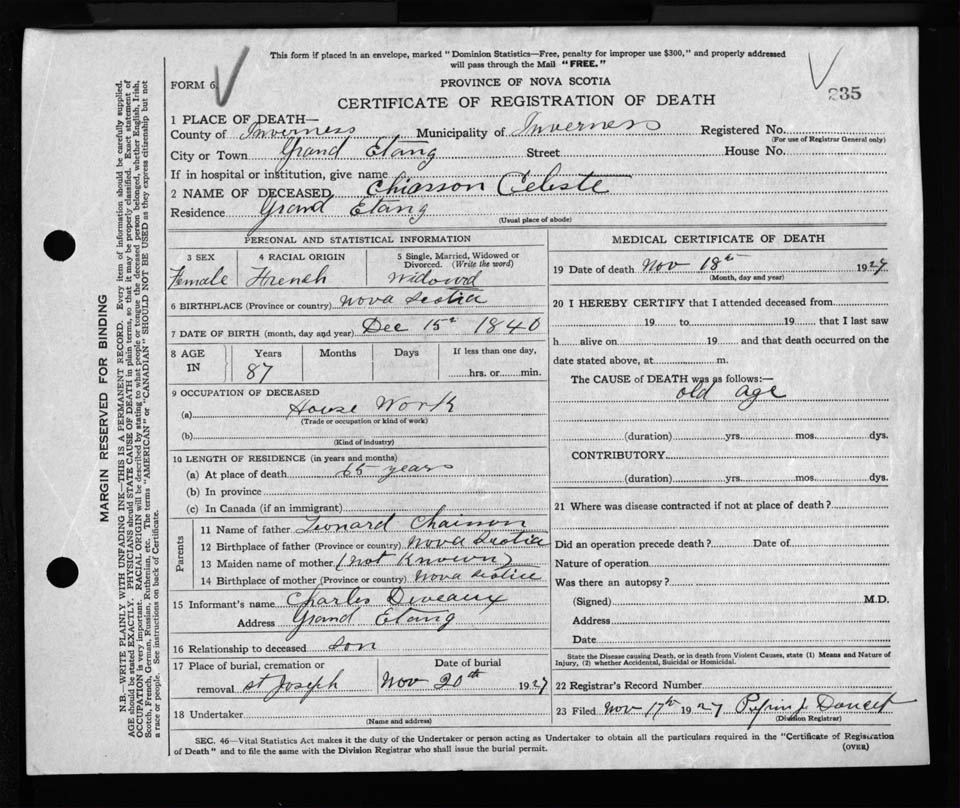 This form if placed in an envelope, marked "Dominion Statistics—Free, penalty for improper use $300," and properly addressed
will pass through the Mail "FREE."
FORM 6
PROVINCE OF NOVA SCOTIA
235
CERTIFICATE OF REGISTRATION OF DEATH
1 PLACE OF DEATH—
County of Inverness Municipality of Inverness Registered No.
(For use of Registrar General only)
City or Town Grand Etang Street House No.
If in hospital or institution, give name
2 NAME OF DECEASED Chiasson Celeste
Residence Grand Etang
(Usual place of abode)
PERSONAL AND STATISTICAL INFORMATION
3 SEX 4 RACIAL ORIGIN 5 Single, Married, Widowed or Divorced. (Write the word)
Female French Widowd
6 BIRTHPLACE (Province or country) Nova Scotia
7 DATE OF BIRTH (month, day and year) Dec 15th 1840
8 AGE IN Years Months Days If less than one day,
87 hrs. or min.
9 OCCUPATION OF DECEASED
(a) House Work
(Trade or occupation or kind of work)
(b)
(Kind of industry)
10 LENGTH OF RESIDENCE (in years and months)
(a) At place of death 65 years
(b) In province
(c) In Canada (if an immigrant)
Parents
11 Name of father Leonard Chaisson
12 Birthplace of father (Province or country) Nova Scotia
13 Maiden name of mother (not Known)
14 Birthplace of mother (Province or country) Nova Scotia
15 Informant's name Charles Deveaux
Address Grand Etang
16 Relationship to deceased son
17 Place of burial, cremation or Date of burial
removal St Joseph Nov 20th 1927
18 Undertaker
(Name and address)
MEDICAL CERTIFICATE OF DEATH
19 Date of death Nov 18th 1927
(Month, day and year)
20 I HEREBY CERTIFY that I attended deceased from
19 to 19 that I last saw
h alive on 19 and that death occurred on the
date stated above, at m.
The CAUSE of DEATH was as follows:—
old age
(duration) yrs. mos. dys.
CONTRIBUTORY
(duration) yrs. mos. dys.
21 Where was disease contracted if not at place of death?
Did an operation precede death? Date of
Nature of operation
Was there an autopsy?
(Signed) M.D.
Address
Date
State the Disease causing Death, or in death from Violent Causes, state (1) Means and Nature of
Injury, (2) whether Accidental, Suicidal or Homicidal.
22 Registrar's Record Number
23 Filed Nov 17th 1927
(Division Registrar)
SEC. 46—Vital Statistics Act makes it the duty of the Undertaker or person acting as Undertaker to obtain all the particulars required in the "Certificate of Registration
of Death" and to file the same with the Division Registrar who shall issue the burial permit.
(OVER)
MARGIN RESERVED FOR BINDING
N.B.—WRITE PLAINLY WITH UNFADING INK—THIS IS A PERMANENT RECORD. Every item of information should be carefully supplied.
AGE should be stated EXACTLY. PHYSICIANS should STATE CAUSE OF DEATH in plain terms, so that it may be properly classified. Exact statement of
OCCUPATION is very important. RACIAL ORIGIN will be described by stating to what people or tongue the deceased person belonged, whether English, Irish,
Scotch, French, German, Russian, Ruthenian, etc. The terms "AMERICAN" or "CANADIAN" SHOULD NOT BE USED as they express citizenship but not
a race or people. See instructions on back of Certificate.